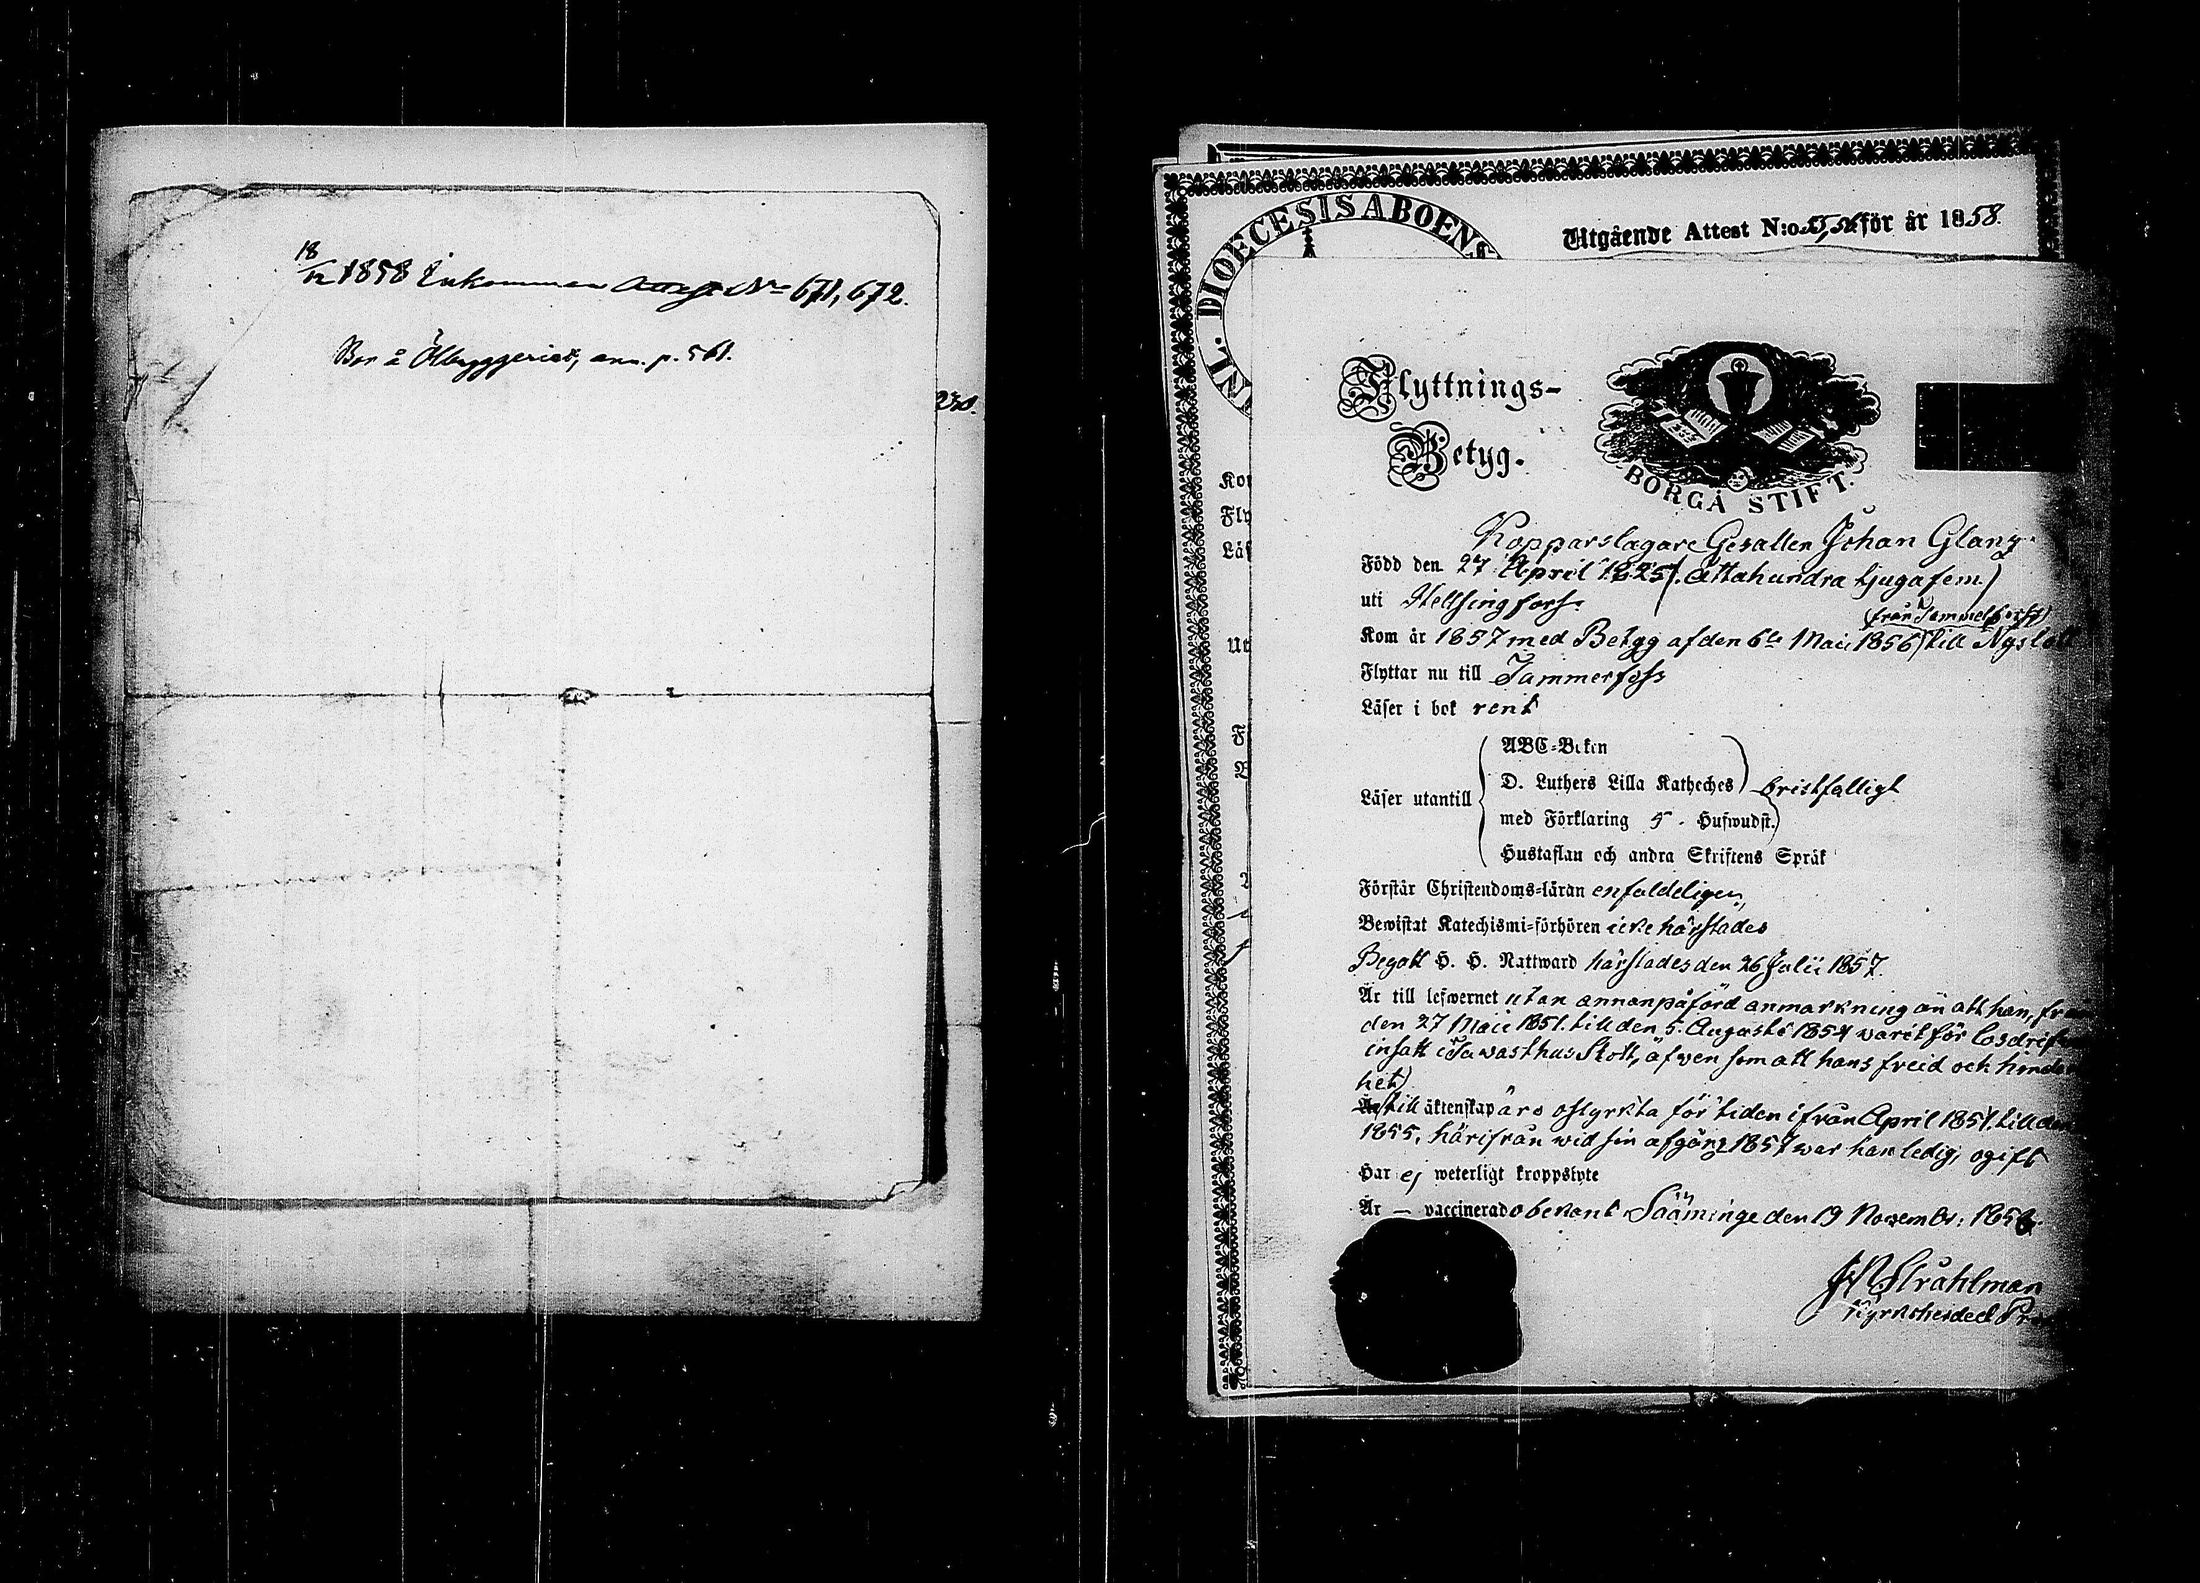 18/12 1858 Inkommen Attest No 671, 672.
Bor å Ölbryggeriet, ann. p. 561.
230.
DIOECESIS ABOENS
Utgående Attest N:o 55, 56 för år 1858.
Flyttnings-
Betyg.
BORGÅ STIFT.
Kopparslagare Gesällen Johan Glanz
Född den 27 April 1825 (. åttahundra tjugufem.)
uti Helsingfors.
(från Tammerfors)
Kom år 1857 med Betyg af den 6te Maii 1856 till Nyslott
Flyttar nu till Tammerfors
Läser i bok rent
ABC-Boken
Läser utantill D. Luthers Lilla Katheches bristfälligt
med Förklaring 5 - Hufwudst.
Hustaflan och andra Skriftens Språk
Förstår Christendoms-läran enfaldeligen,
Bewistat Katechismi-förhören icke härstädes
Begått H. H. Nattward härstädes den 26 Julii 1857.
Är till lefwernet utan annan påförd anmärkning än att han, från
den 27 Maii 1851. till den 5. Augusti 1854 warit för lösdrif
insatt i Tawasthus Slott, äfwen som att hans frejd och hinder
het)
Är till äktenskap äro ostyrkta för tiden ifrån April 1851. till den
1855, härifrån wid sin afgång 1857 war han ledig, ogift
Har ej weterligt kroppslyte
Är — vaccinerad obekant. Sääminge den 19 Novembr: 1858.
Stråhlman
Kyrkoherde